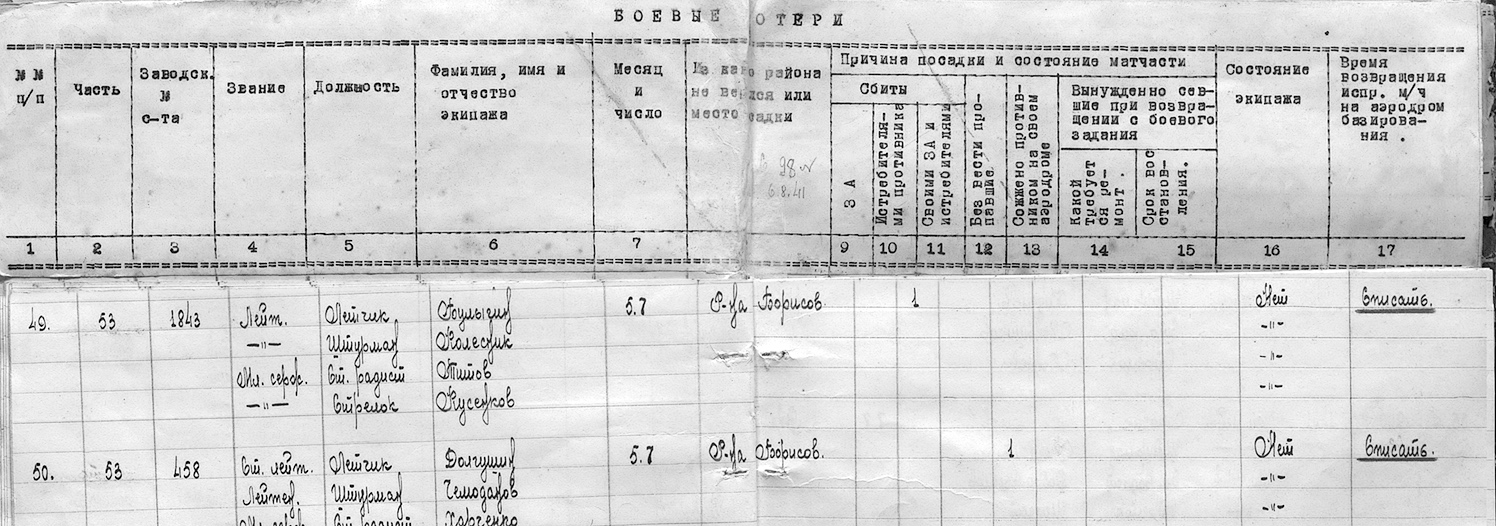 БОЕВЫЕ ОТЕРИ
№№ п/п
Часть
Заводск. № с-та
Звание
Должность
Фамилия, имя и отчество экипажа
Месяц и число
района
не ве лся или
место адки
Причина посадки и состояние матчасти
Сбиты
ЗА
Истребителями противника
Своими ЗА и истребителями
Без вести пропавшие.
Сожжено противником на своем аэродроме
Вынужденно севшие при возвращении с боевого задания
Какой требуется ремонт.
Срок восстановления.
Состояние экипажа
Время возвращения испр. м/ч на аэродром базирования.
98
6.8.41
1 2 3 4 5 6 7 9 10 11 12 13 14 15 16 17
49. 53 1843 Лейт. Летчик Булыгин 5.7 Р-на Борисов. 1 Нет Списать.
—"— Штурман Колесник -"-
Мл. серж. Ст. радист Титов -"-
—"— Стрелок Кусенков -"-
50. 53 458 Ст. лейт. Летчик Долгушин 5.7 Р-на Борисов. 1 Нет Списать.
Лейтен. Штурман Чемоданов -"-
Мл. серж. Ст. радист Харченко -"-